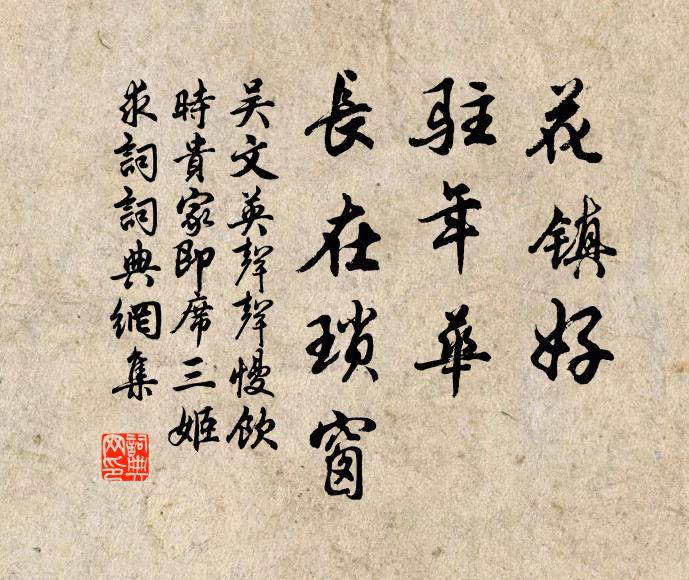 花镇好
駐年華
長在瑣窗
吴文英聲聲慢飲
時貴家即席三姬
求詞詞典網集
詞典
网印